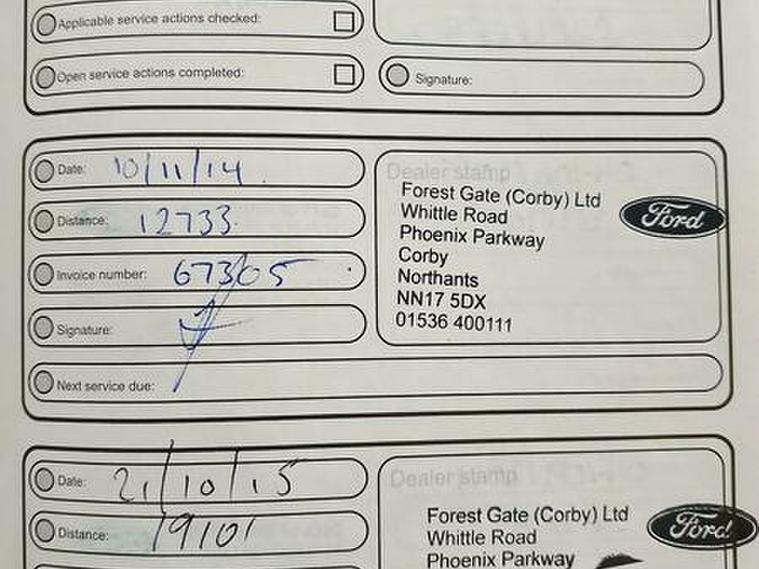 Applicable service actions checked:
Open service actions completed:
Signature:
Date: 10/11/14
Distance: 12733
Invoice number: 67305
Signature:
Next service due:
Dealer stamp
Forest Gate (Corby) Ltd
Whittle Road
Phoenix Parkway
Corby
Northants
NN17 5DX
01536 400111
Ford
Date: 21/10/15
Distance: 19101
Dealer stamp
Forest Gate (Corby) Ltd
Whittle Road
Phoenix Parkway
Ford